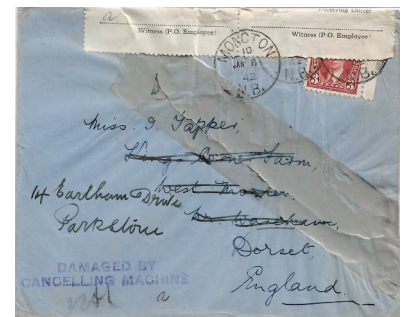 a
Receiving Officer
Witness (P.O. Employee)
Witness (P.O. Employee)
MONCTON
10
JAN 6
42
N.B.
42
N.B.
3 3
Miss I. Tapper,
Farm,
West
14 Earlham Drive
Parkstone
Dorset,
England.
DAMAGED BY
CANCELLING MACHINE
a